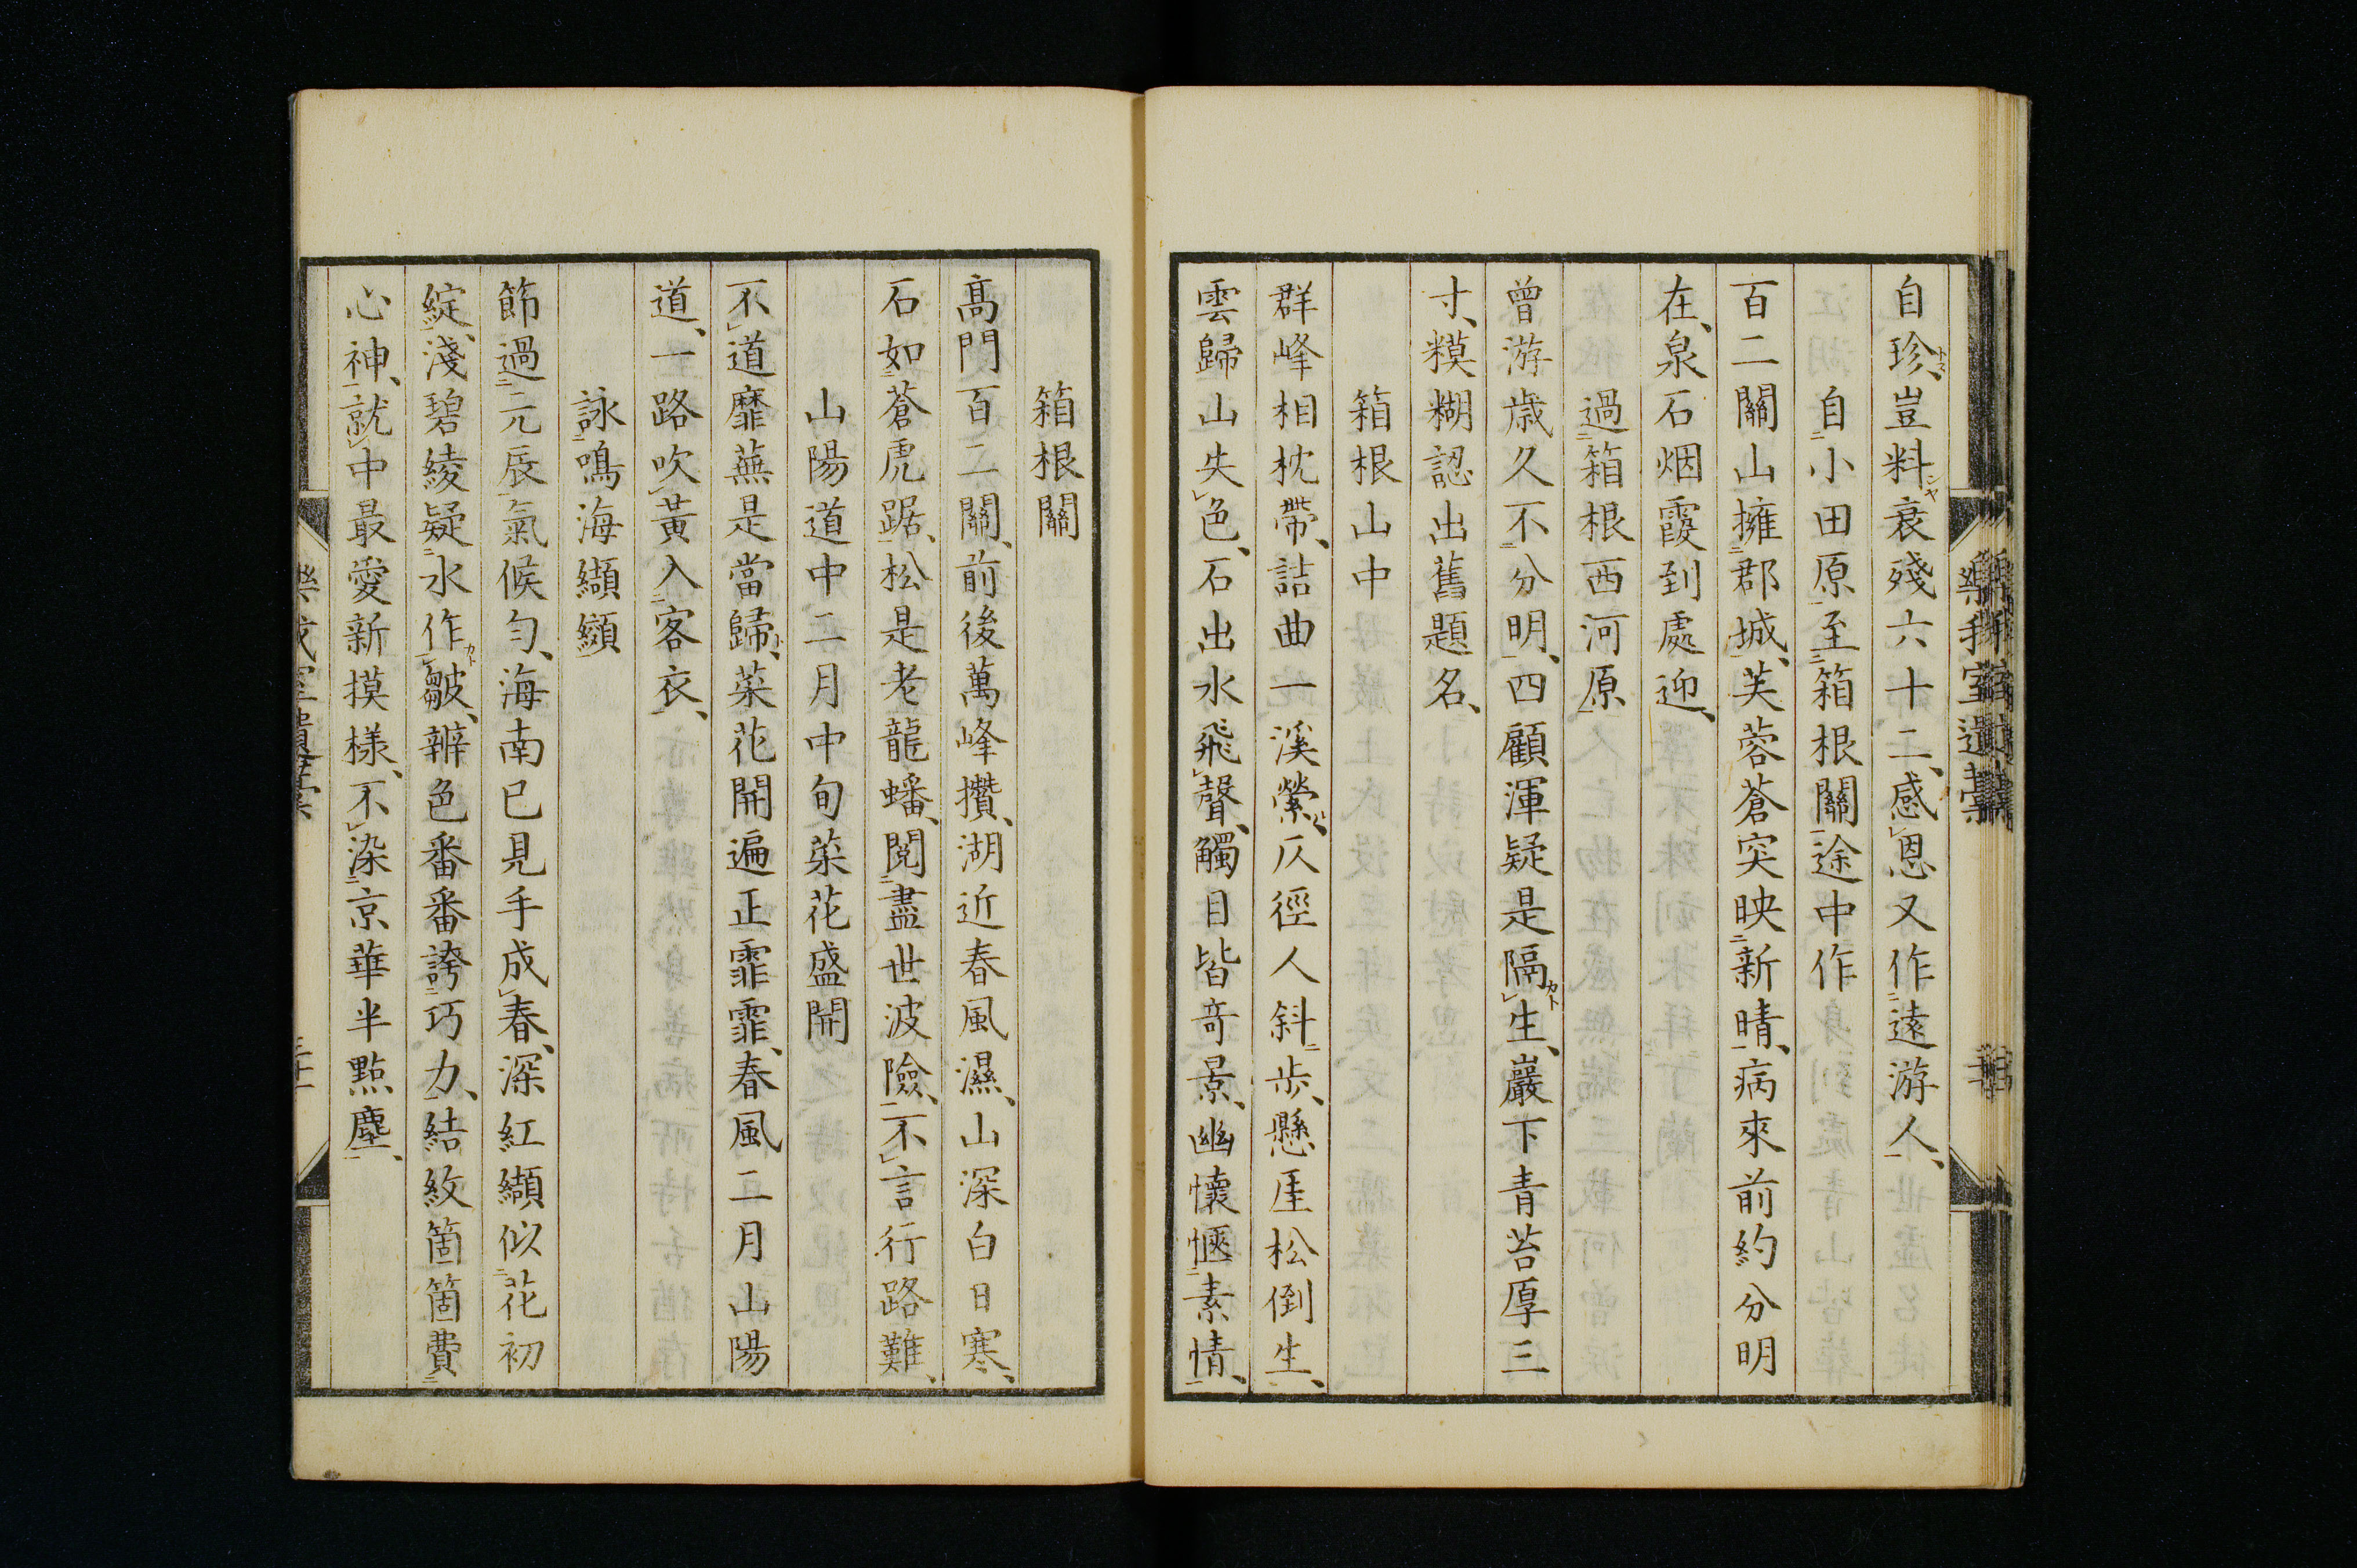 自珍、豈料衰殘六十二、感恩又作遠游人、
自小田原至箱根關途中作
百二關山擁郡城、芙蓉蒼突映新晴、病來前約分明
在、泉石烟霞到處迎、
過箱根西河原
曾游歲久不分明、四顧渾疑是隔生、巖下青苔厚三
寸、糢糊認出舊題名、
箱根山中
群峰相枕帶、詰曲一溪縈、仄徑人斜步、懸厓松倒生、
雲歸山失色、石出水飛聲、觸目皆奇景、幽懷愜素情、
箱根關
高門百二關、前後萬峰攢、湖近春風濕、山深白日寒、
石如蒼虎踞、松是老龍蟠、閱盡世波險、不言行路難、
山陽道中二月中旬菜花盛開
不道蘼蕪是當歸、菜花開遍正霏霏、春風二月山陽
道、一路吹黃入客衣、
詠鳴海纈纐
節過元辰氣候勻、海南已見手成春、深紅纈似花初
綻、淺碧綾疑水作皺、辨色番番誇巧力、結紋箇箇費
心神、就中最愛新摸樣、不染京華半點塵、